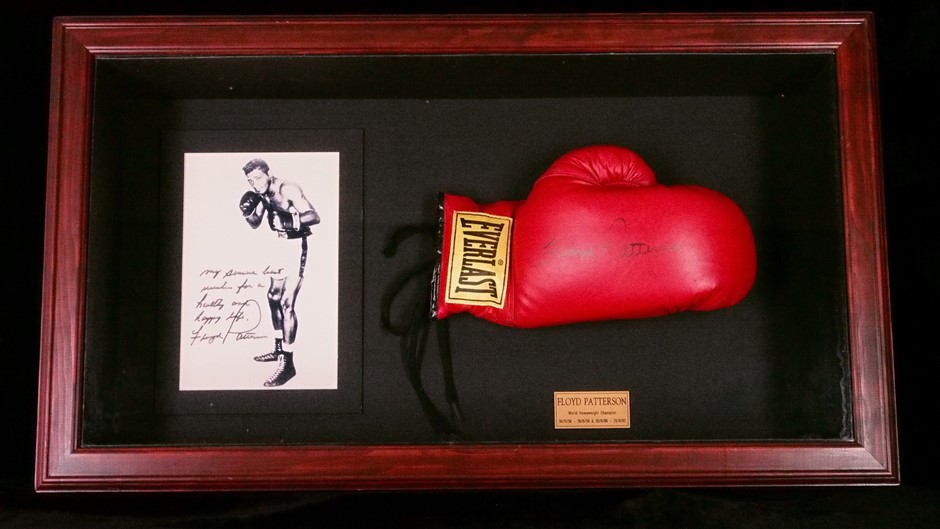 my sincere best
wishes for a
healthy and
happy life.
Floyd Patterson
EVERLAST
®
Floyd Patterson
FLOYD PATTERSON
World Heavyweight Champion